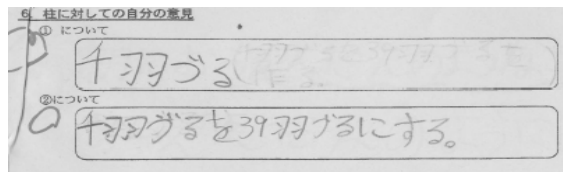 6. 柱に対しての自分の意見
① について
千羽づる
②について
千羽づるを39羽づるにする。